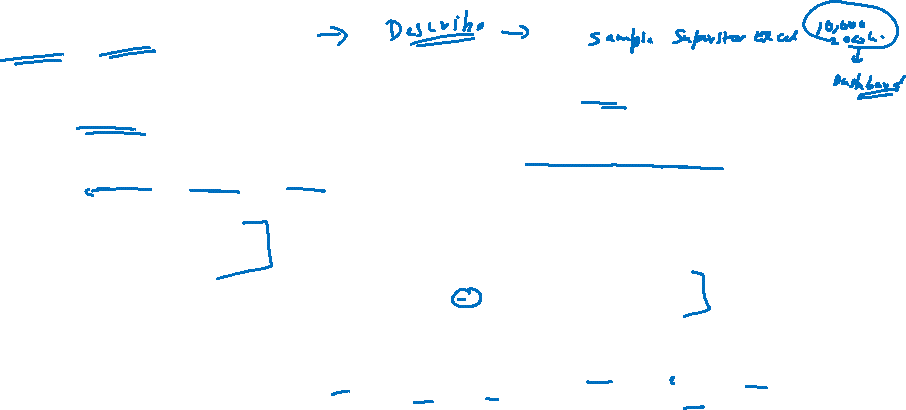 → Describe → Sample Superstore Excel 10,000
↓
Dashboard